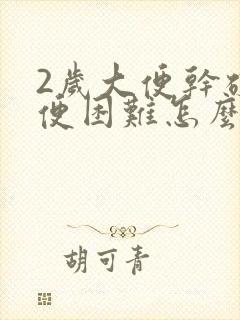 2歲大便幹
便困難怎麼
胡可青